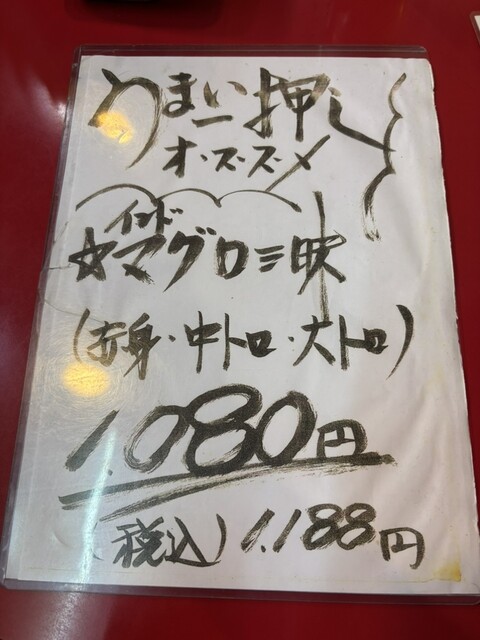 うまい一押し
オ・ス・ス・メ
☆インドマグロ三昧
(赤身・中トロ・大トロ)
1,080円
(税込)1,188円